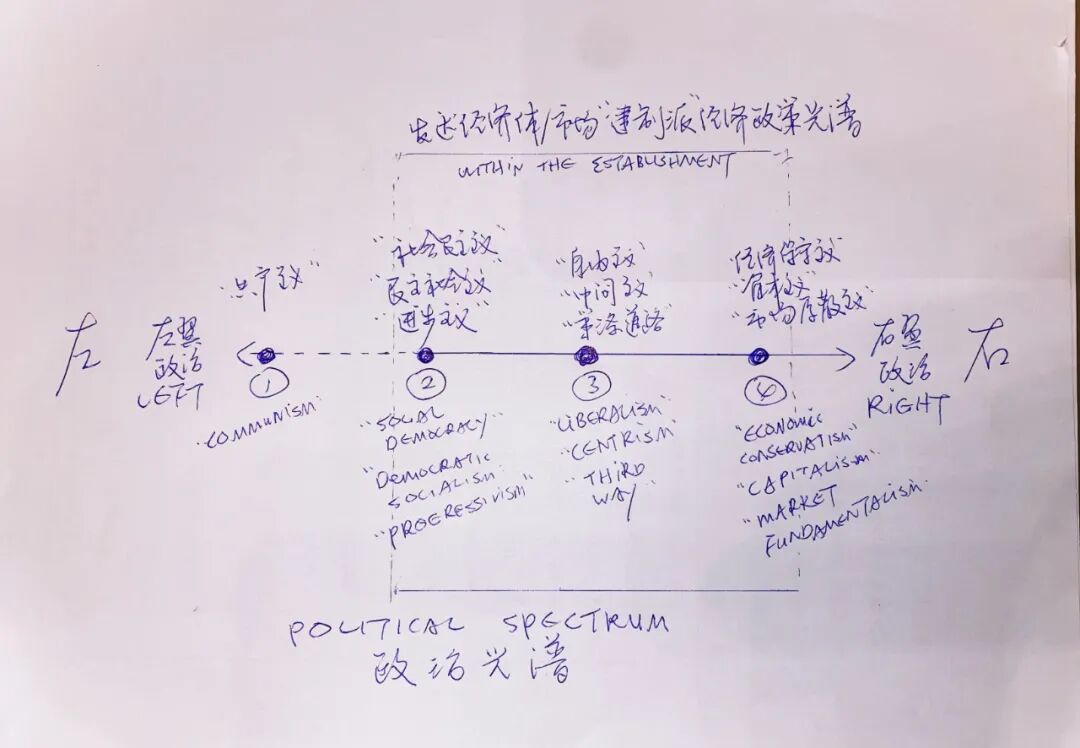 发达经济体/市场"建制派"经济政策光谱
WITHIN THE ESTABLISHMENT
"共产主义"
"社会民主主义"
"民主社会主义"
"进步主义"
"自由主义"
"中间主义"
"第三条道路"
"经济保守主义"
"资本主义"
"市场原教旨主义"
左
左翼
政治
LEFT
①
②
③
④
右翼
政治
RIGHT
右
"COMMUNISM"
"SOCIAL
DEMOCRACY"
"DEMOCRATIC
SOCIALISM"
"PROGRESSIVISM"
"LIBERALISM"
"CENTRISM"
"THIRD
WAY"
"ECONOMIC
CONSERVATISM"
"CAPITALISM"
"MARKET
FUNDAMENTALISM"
POLITICAL SPECTRUM
政治光谱